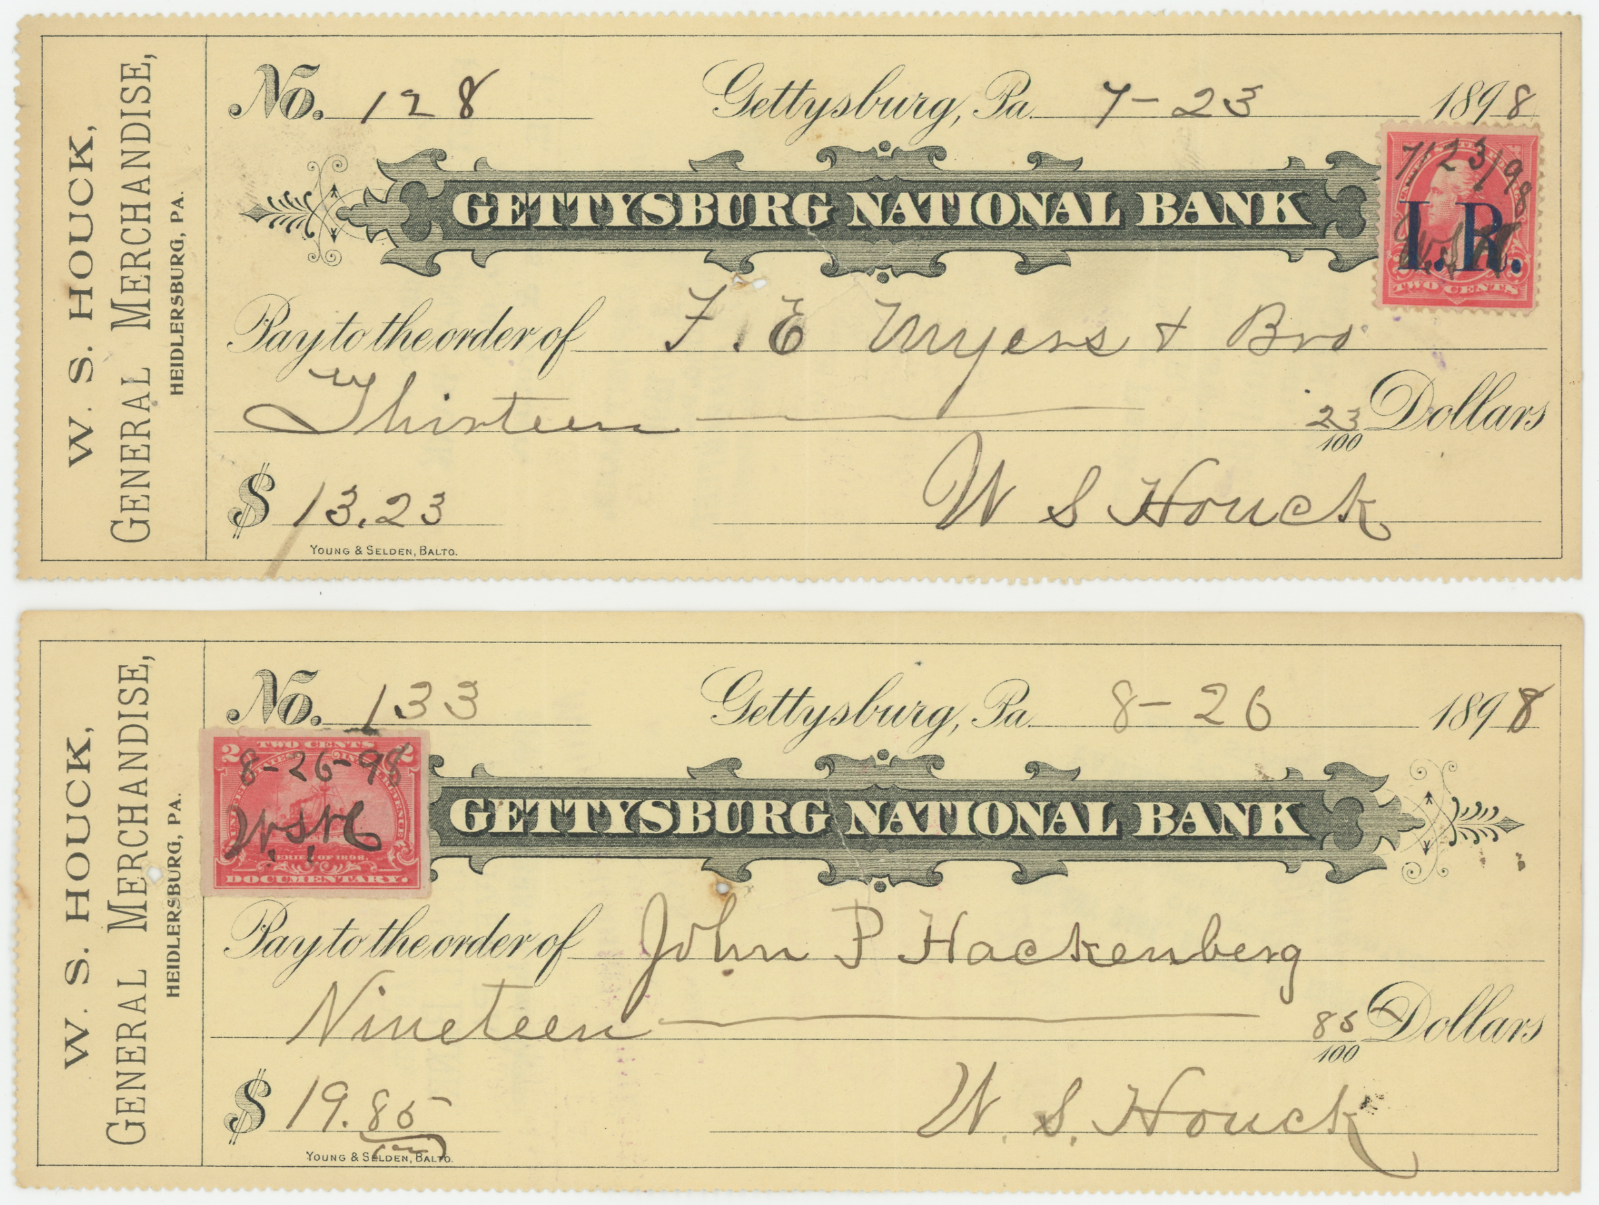 W. S. HOUCK,
GENERAL MERCHANDISE,
HEIDLERSBURG, PA.
No. 128 Gettysburg, Pa. 7-23 1898
GETTYSBURG NATIONAL BANK
7/23/98
I.R.
TWO CENTS
Pay to the order of F. E Myers & Bro
Thirteen 23/100 Dollars
$ 13.23 W S Houck
YOUNG & SELDEN, BALTO.
W. S. HOUCK,
GENERAL MERCHANDISE,
HEIDLERSBURG, PA.
No. 133 Gettysburg, Pa. 8-26 1898
2 TWO CENTS 2
8-26-98
W.S.H
SERIES OF 1898.
DOCUMENTARY.
GETTYSBURG NATIONAL BANK
Pay to the order of John P Hackenberg
Nineteen 85/100 Dollars
$ 19.85 W. S. Houck
YOUNG & SELDEN, BALTO.